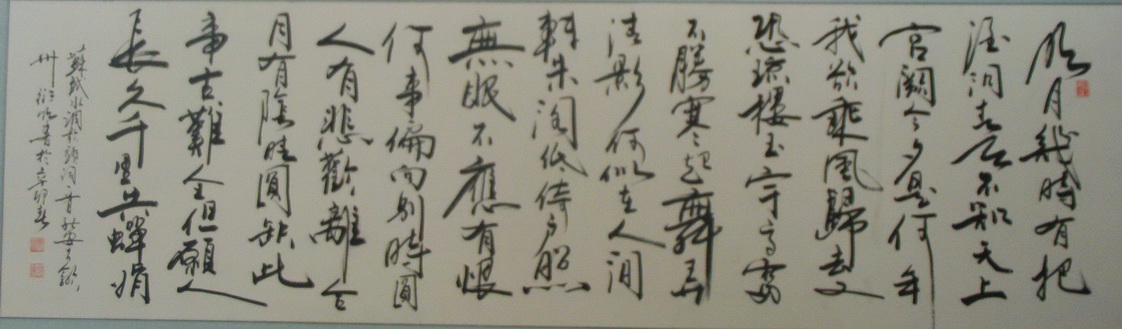 明月幾時有把
酒問青天不知天上
宮闕今夕是何年
我欲乘風歸去又
恐瓊樓玉宇高處
不勝寒起舞弄
清影何似在人間
轉朱閣低倚戶照
無眠不應有恨
何事偏向別時圓
人有悲歡離合
月有陰晴圓缺此
事古難全但願人
長久千里共嬋娟
蘇軾水調歌頭詞一首
州書於辛卯春